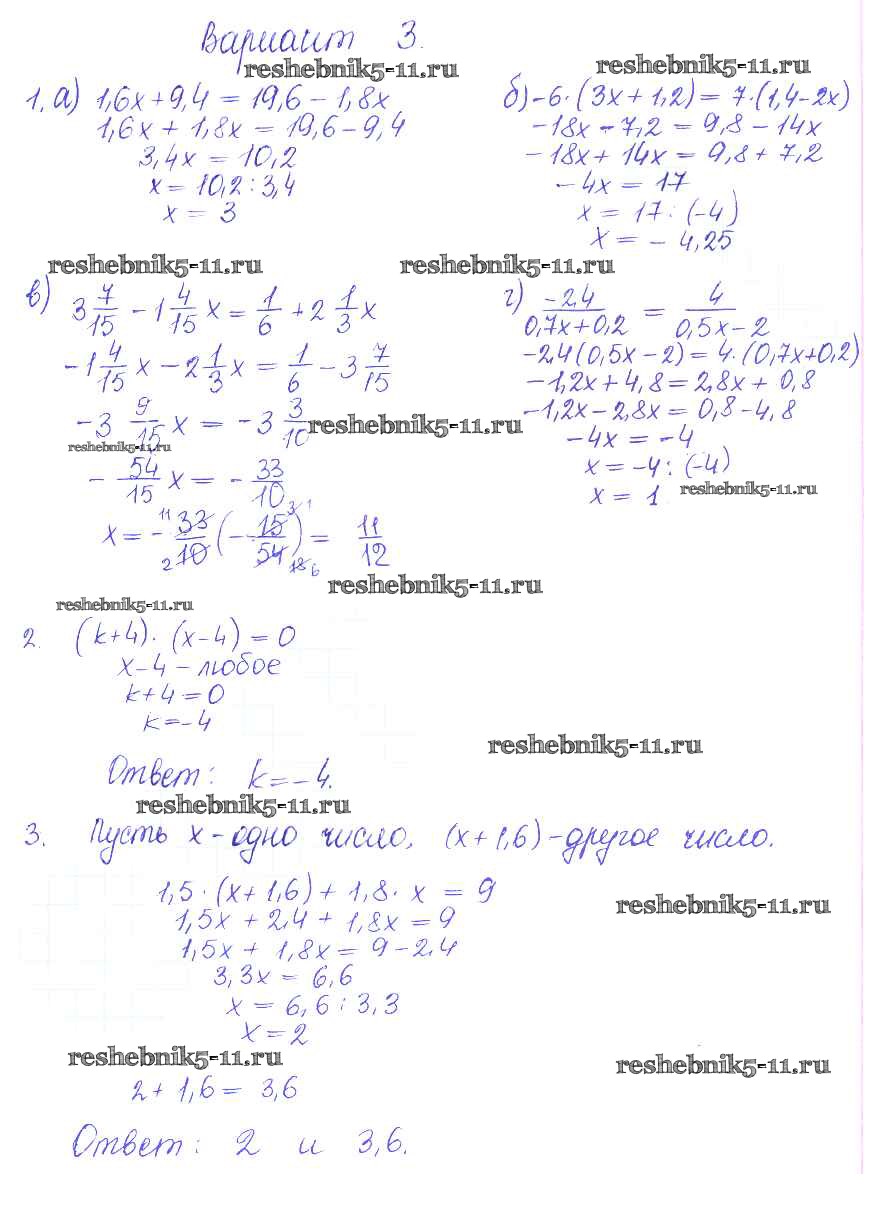 Вариант 3.
reshebnik5-11.ru reshebnik5-11.ru
1. а) 1,6x + 9,4 = 19,6 - 1,8x
1,6x + 1,8x = 19,6 - 9,4
3,4x = 10,2
x = 10,2 : 3,4
x = 3
б) -6·(3x + 1,2) = 7·(1,4 - 2x)
-18x - 7,2 = 9,8 - 14x
-18x + 14x = 9,8 + 7,2
-4x = 17
x = 17 : (-4)
x = - 4,25
reshebnik5-11.ru reshebnik5-11.ru
в) 3 7/15 - 1 4/15 x = 1/6 + 2 1/3 x
-1 4/15 x - 2 1/3 x = 1/6 - 3 7/15
-3 9/15 x = -3 3/10
reshebnik5-11.ru
reshebnik5-11.ru
- 54/15 x = - 33/10
x = - 33/10 (- 15/54) = 11/12
г) -2,4/(0,7x + 0,2) = 4/(0,5x - 2)
-2,4(0,5x - 2) = 4·(0,7x + 0,2)
-1,2x + 4,8 = 2,8x + 0,8
-1,2x - 2,8x = 0,8 - 4,8
-4x = -4
x = -4 : (-4)
x = 1
reshebnik5-11.ru
reshebnik5-11.ru
reshebnik5-11.ru
2. (k+4)·(x-4) = 0
x-4 - любое
k+4 = 0
k = -4
reshebnik5-11.ru
Ответ: k = -4.
reshebnik5-11.ru
3. Пусть x - одно число, (x + 1,6) - другое число.
1,5·(x + 1,6) + 1,8·x = 9
reshebnik5-11.ru
1,5x + 2,4 + 1,8x = 9
1,5x + 1,8x = 9 - 2,4
3,3x = 6,6
x = 6,6 : 3,3
x = 2
reshebnik5-11.ru reshebnik5-11.ru
2 + 1,6 = 3,6
Ответ: 2 и 3,6.